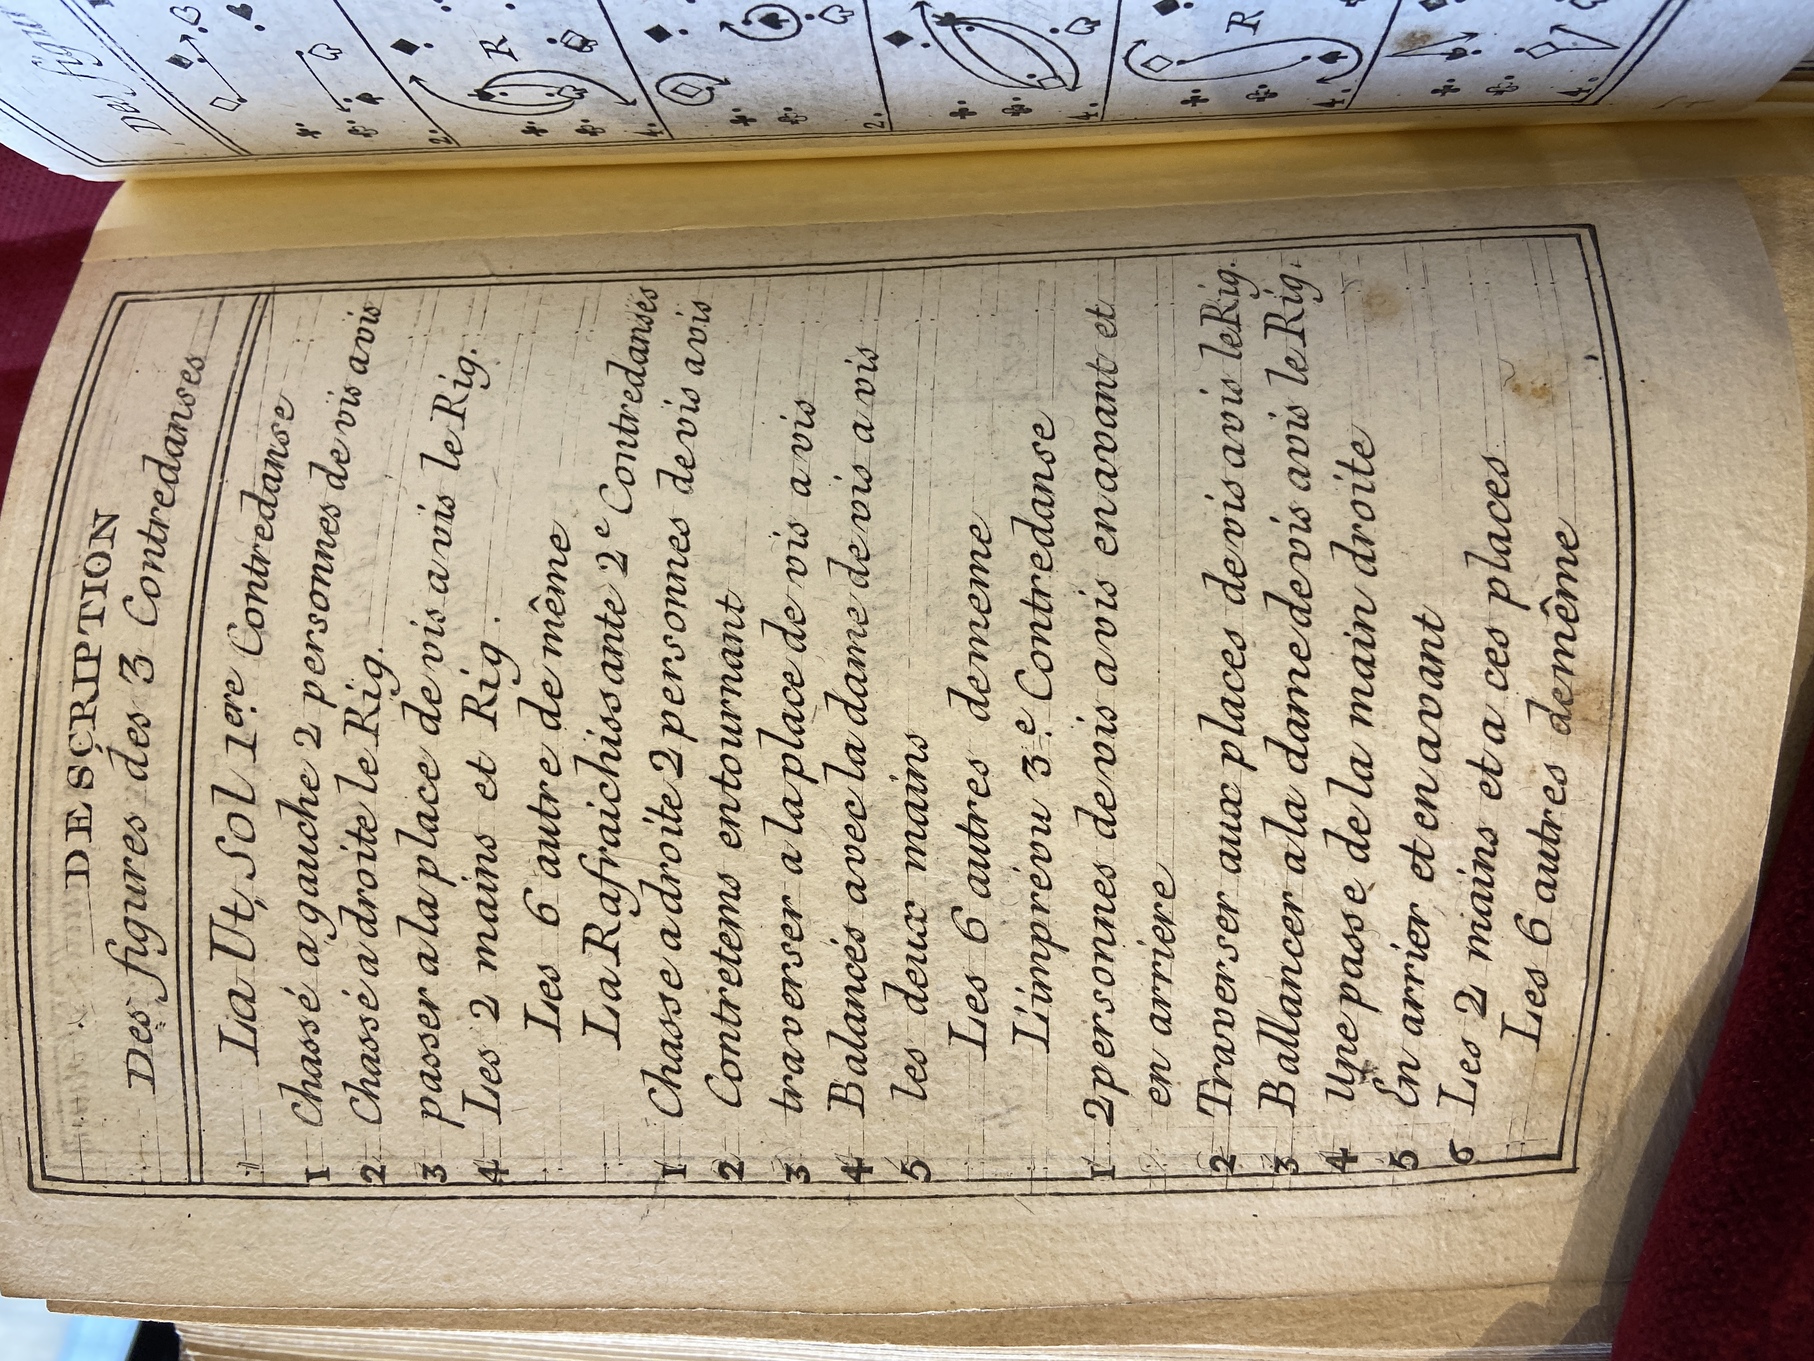 DESCRIPTION
Des figures des 3 Contredanses
La Ut, Sol 1.ere Contredanse
1 Chassé a gauche 2 personnes de vis avis
2 Chassé a droite le Rig.
3 passer a la place de vis a vis le Rig.
4 Les 2 mains et Rig.
Les 6 autre de même
La Rafraichissante 2e Contredanses
1 Chasse a droite 2 personnes de vis avis
2 Contretems entournant
3 traverser a la place de vis a vis
4 Balancés avec la dame de vis a vis
5 les deux mains
Les 6 autres de meme
L'imprévu 3.e Contredanse
1 2 personnes de vis a vis en avant et
en arriere
2 Traverser aux places de vis avis le Rig.
3 Ballancer a la dame de vis avis le Rig.
4 Une passe de la main droite
5 En arrier et en avant
6 Les 2 mains et a ces places
Les 6 autres de même
Des figu
4.
2.
R
4.
2.
4.
R
4.
4.